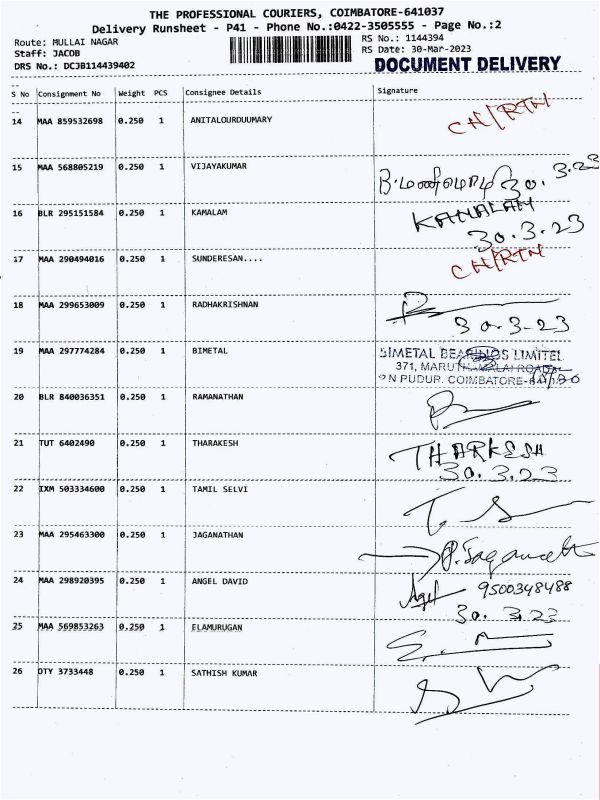 THE PROFESSIONAL COURIERS, COIMBATORE-641037
Delivery Runsheet - P41 - Phone No.:0422-3505555 - Page No.:2
Route: MULLAI NAGAR
Staff: JACOB
DRS No.: DCJB114439402
RS No.: 1144394
RS Date: 30-Mar-2023
DOCUMENT DELIVERY
S No Consignment No Weight PCS Consignee Details Signature
14 MAA 859532698 0.250 1 ANITALOURDUUMARY CN/RTN
15 MAA 568805219 0.250 1 VIJAYAKUMAR 30.3.23
16 BLR 295151584 0.250 1 KAMALAM KAMALAM
30.3.23
17 MAA 290494016 0.250 1 SUNDERESAN.... CN/RTN
18 MAA 299653009 0.250 1 RADHAKRISHNAN
30.3-23
19 MAA 297774284 0.250 1 BIMETAL BIMETAL BEARINGS LIMITED
371, MARUTHAMALAI ROAD
N PUDUR. COIMBATORE-
20 BLR 840036351 0.250 1 RAMANATHAN
21 TUT 6402490 0.250 1 THARAKESH THARKESH
30.3.23
22 IXM 503334600 0.250 1 TAMIL SELVI T. S
23 MAA 295463300 0.250 1 JAGANATHAN
24 MAA 298920395 0.250 1 ANGEL DAVID 9500348488
30.3.23
25 MAA 569853263 0.250 1 ELAMURUGAN
26 OTY 3733448 0.250 1 SATHISH KUMAR